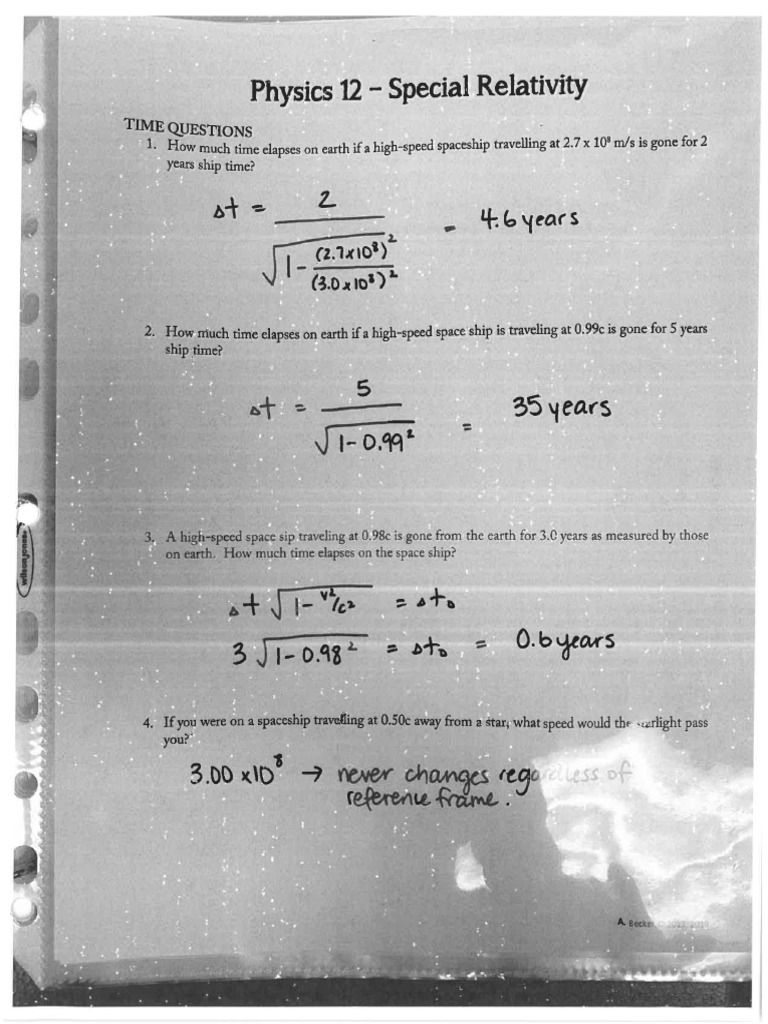 Physics 12 – Special Relativity
TIME QUESTIONS
1. How much time elapses on earth if a high-speed spaceship travelling at 2.7 x 10⁸ m/s is gone for 2
years ship time?
Δt = 2 / √(1 - (2.7x10⁸)² / (3.0 x 10⁸)²) = 4.6 years
2. How much time elapses on earth if a high-speed space ship is traveling at 0.99c is gone for 5 years
ship time?
Δt = 5 / √(1 - 0.99²) = 35 years
3. A high-speed space sip traveling at 0.98c is gone from the earth for 3.0 years as measured by those
on earth. How much time elapses on the space ship?
Δt √(1 - v²/c²) = Δt₀
3 √(1 - 0.98²) = Δt₀ = 0.6 years
4. If you were on a spaceship travelling at 0.50c away from a star, what speed would the starlight pass
you?
3.00 x10⁸ → never changes regardless of
reference frame.
wilson jones
A. Becker